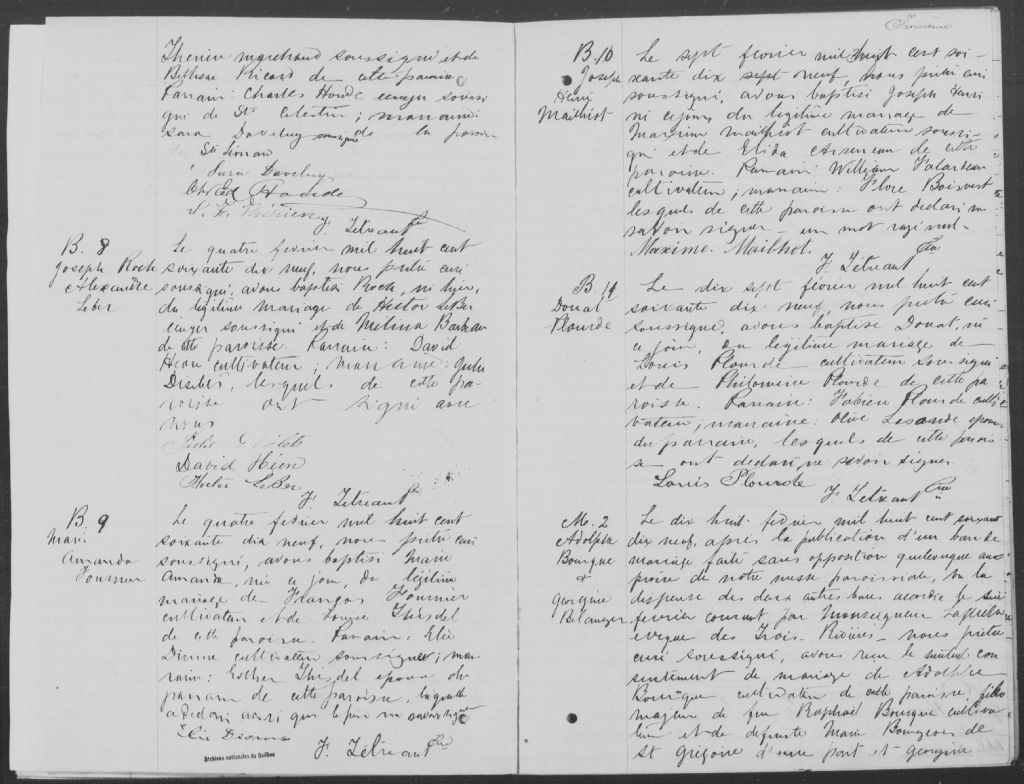 Therien marchand soussigné et de
Bethsée Ricard de cette paroisse
Parrain: Charles Houde ecuyer soussi
gné de St Celestin; marraine:
Sara Daveluy soussignée de la paroisse
Sara Daveluy
Chs Ed Houde
F. Tétreau Ptre
B. 8
Joseph Roch
Alexandre
Leber
Le quatre fevrier mil huit cent
soixante dix neuf, nous prêtre curé
soussigné, avons baptisé Roch, né hier,
du légitime mariage de Hector LeBer
ecuyer soussigné et de Melina
de cette paroisse. Parrain: David
Héon cultivateur; marraine: Julie
lesquels de cette pa-
roisse ont signé avec
nous
David Héon
Hector LeBer
F. Tétreau Ptre
B. 9
Marie
Amanda
Fournier
Le quatre fevrier mil huit cent
soixante dix neuf, nous prêtre curé
soussigné, avons baptisé Marie
Amanda, née ce jour, du légitime
mariage de François Fournier
cultivateur et de Louise
de cette paroisse. Parrain: Elie
Dionne cultivateur soussigné; mar
raine: Esther épouse du
parrain de cette paroisse, laquelle
a déclaré ainsi que le père ne savoir signer
Elie Dionne
F. Tétreau Ptre
Archives nationales du Québec
Troisième
B. 10
Joseph
Henri
Mailhiot
Le sept fevrier mil huit cent soi-
xante dix sept neuf, nous prêtre curé
soussigné, avons baptisé Joseph Henri
né ce jour du légitime mariage de
Maxime Mailhiot cultivateur soussi-
gné et de Elida de cette
paroisse. Parrain: William Falardeau
cultivateur; marraine: Flore Boisvert
lesquels de cette paroisse ont déclaré ne
savoir signer - un mot rayé nul -
Maxime. Mailhot.
F. Tétreau Ptre
B. 11
Donat
Plourde
Le dix sept février mil huit cent
soixante dix neuf, nous prêtre curé
soussigné, avons baptisé Donat, né
ce jour, du légitime mariage de
Louis Plourde cultivateur soussigné
et de Philomène Plourde de cette pa
roisse. Parrain: Fabien Plourde culti
vateur; marraine: Olive épouse
du parrain, lesquels de cette parois
se ont déclaré ne savoir signer
Louis Plourde
F. Tétreau Ptre
M. 2
Adolphe
Bourque
&
Georgine
Belanger
Le dix huit fevrier mil huit cent soixante
dix neuf, après la publication d'un ban de
mariage faite sans opposition quelconque au
prône de notre messe paroissiale, vu la
dispense des deux autres bans accordée le six
fevrier courant, par Monseigneur Laflèche
evêque des Trois-Rivières - nous prêtre
curé soussigné, avons reçu le mutuel con
sentement de mariage de Adolphe
Bourque cultivateur de cette paroisse, fils
majeur de feu Raphaël Bourque cultiva
teur et de défunte Marie Bourgeois de
St Grégoire d'une part et Georgine